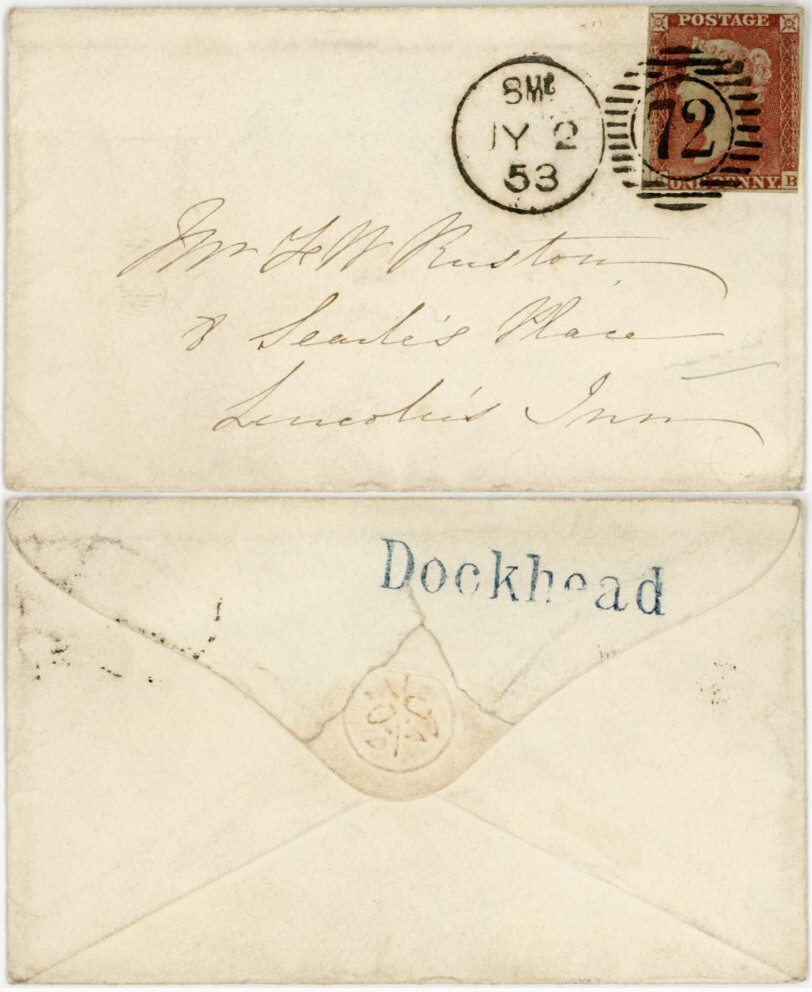 POSTAGE
8
JY 2
53
72
ONE PENNY B
Mr F W Ruston
8 Searle's Place
Lincoln's Inn
Dockhead